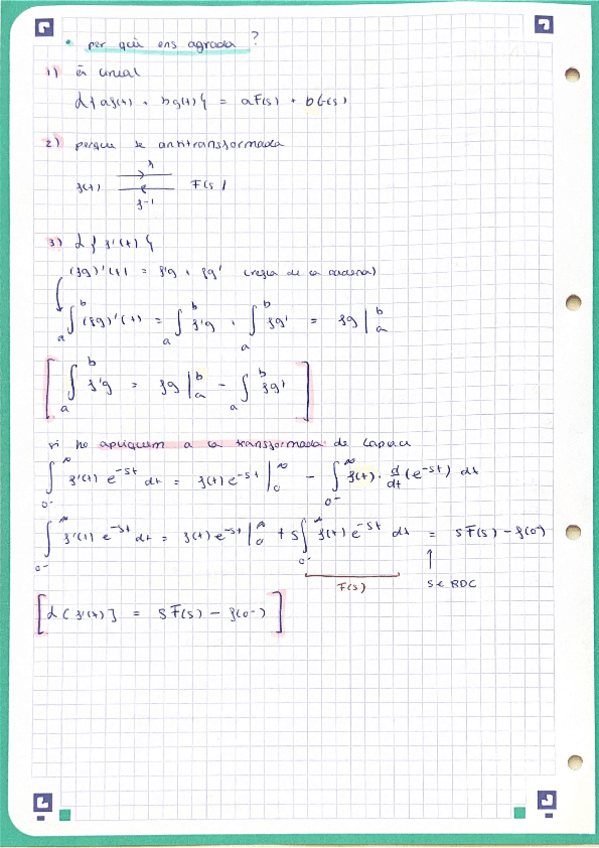 • per què ens agrada ?
1) és lineal
L{af(t) + bg(t)} = aF(s) + bG(s)
2) perquè té antitransformada
L
f(t) ⇄ F(s)
L⁻¹
3) L{f'(t)}
(fg)'(t) = f'g + fg' (regla de la cadena)
∫_a^b (fg)'(t) = ∫_a^b f'g + ∫_a^b fg' = fg |_a^b
[∫_a^b f'g = fg |_a^b - ∫_a^b fg']
si ho apliquem a la transformada de Laplace
∫_{0⁻}^∞ f'(t) e^{-st} dt = f(t) e^{-st} |_0^∞ - ∫_{0⁻}^∞ f(t) · d/dt (e^{-st}) dt
∫_{0⁻}^∞ f'(t) e^{-st} dt = f(t) e^{-st} |_0^∞ + s ∫_{0⁻}^∞ f(t) e^{-st} dt = sF(s) - f(0⁻)
F(s) ↑ s ∈ RDC
[L{f'(t)} = sF(s) - f(0⁻)]